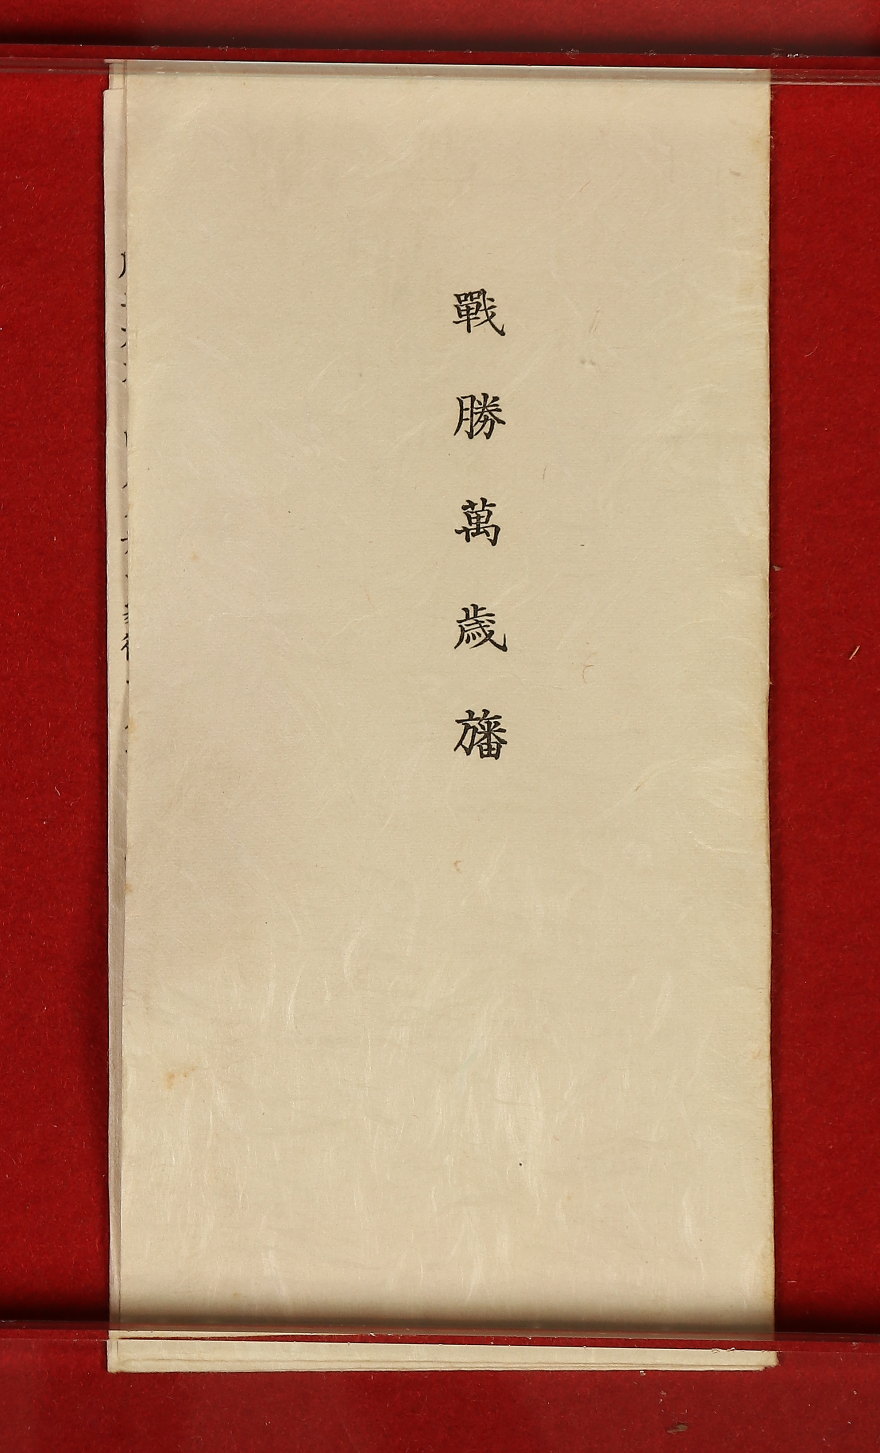 戰勝萬歲旛